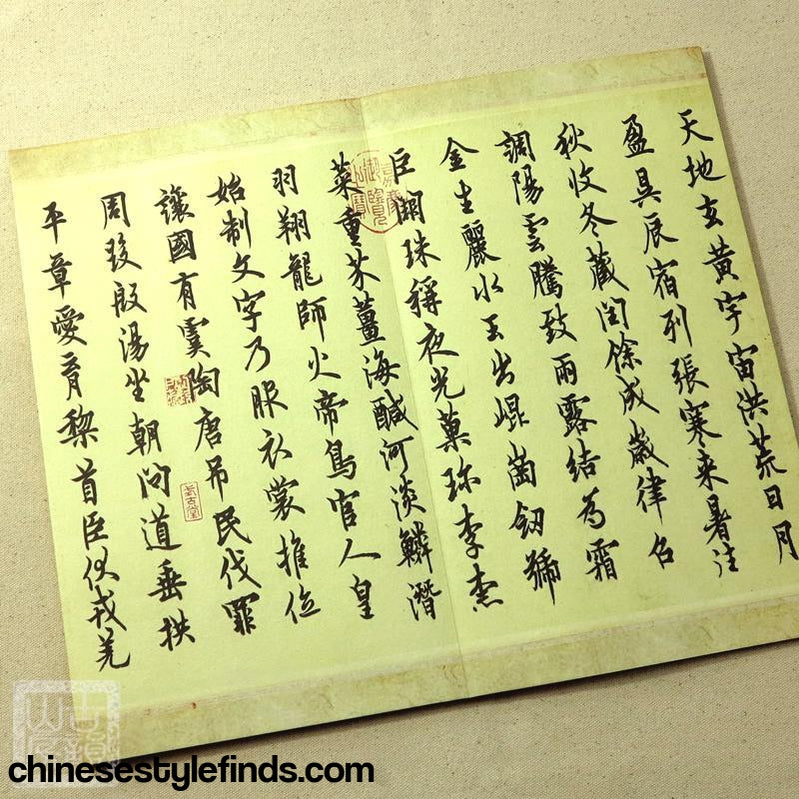 天地玄黃宇宙洪荒日月
盈昃辰宿列張寒来暑往
秋收冬藏閏餘成歲律召
調陽雲騰致雨露結為霜
金生麗水玉出崐崗劒號
巨闕珠稱夜光菓珎李柰
菜重芥薑海醎河淡鱗潛
羽翔龍師火帝鳥官人皇
始制文字乃服衣裳推位
讓國有虞陶唐吊民伐罪
周發殷湯坐朝問道垂拱
平章愛育黎首臣伏戎羌
嘉慶御覽之寶
chinesestylefinds.com